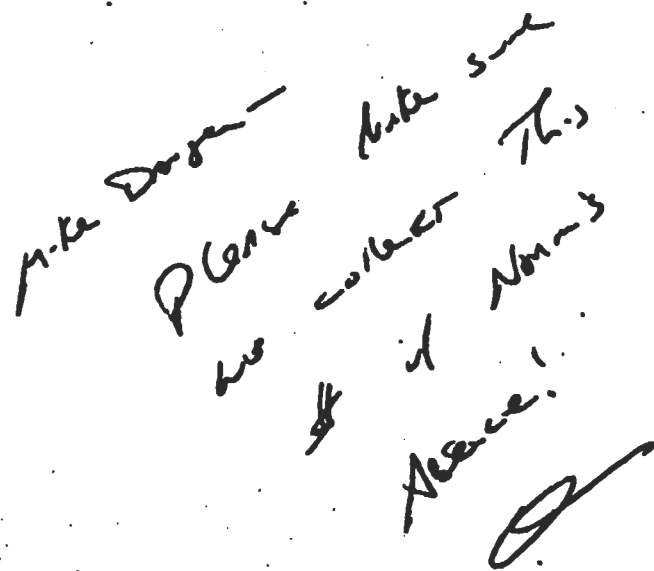 Mike Dorgan —
Please Make sure
we collect This
$ in Norm's
Absence!